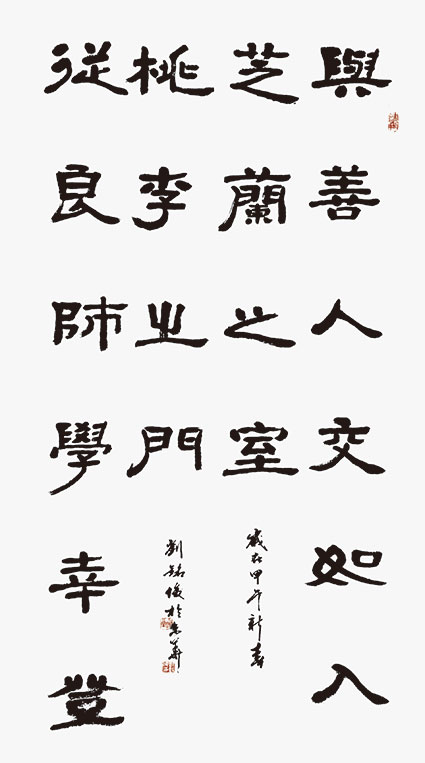 與善人交如入
芝蘭之室
從良師學幸登
桃李之門
歲在甲午新春
劉銘俊於華